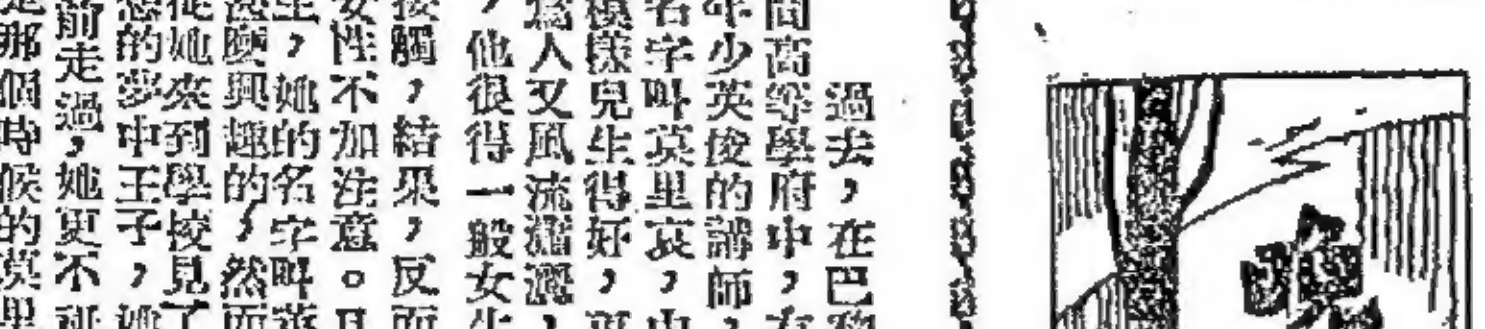 過去，在巴
間高等學府中，有
年少英俊的講師，
名字叫莫里哀，由
模樣兒生得好，
為人又風流瀟灑，
，他很得一般女生
接觸，結果，反而
女性不加注意。且
生，她的名字叫
麼興趣的，然而
從她來到學校見了
想的夢中王子，她
前走過，她更不
是那個時候的莫里